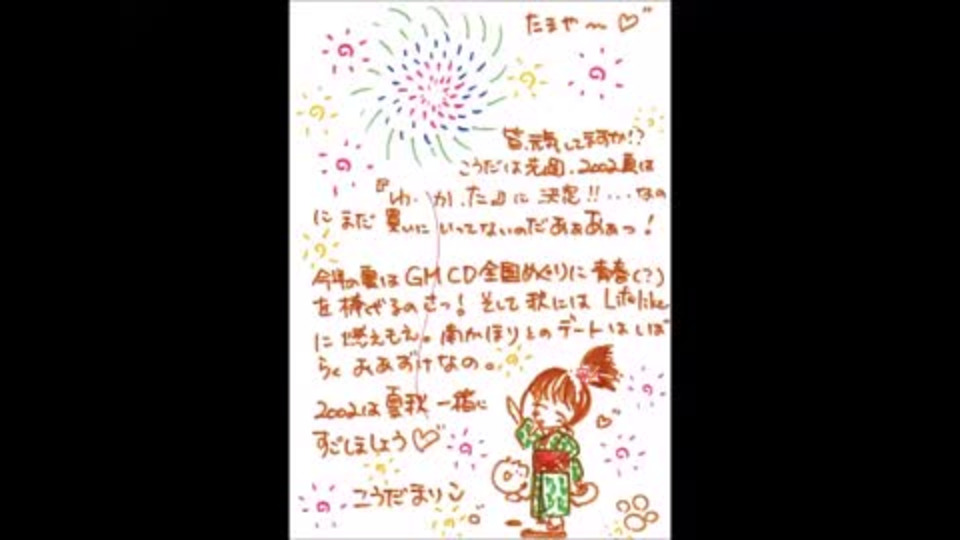 たまや〜♡
皆、元気してますか!?
こうだは先週、2002夏は
『ゆ.か.た』に決定!!...なの
にまだ買いにいってないのだあぁあぁっ!
今年の夏はGMCD全国めぐりに青春(?)
を捧げるのさっ!そして秋にはLifelike
に燃えもえ。南かほりとのデートはしば
らくおあずけなの。
2002は夏秋一緒に
すごしましょう♡
こうだまり